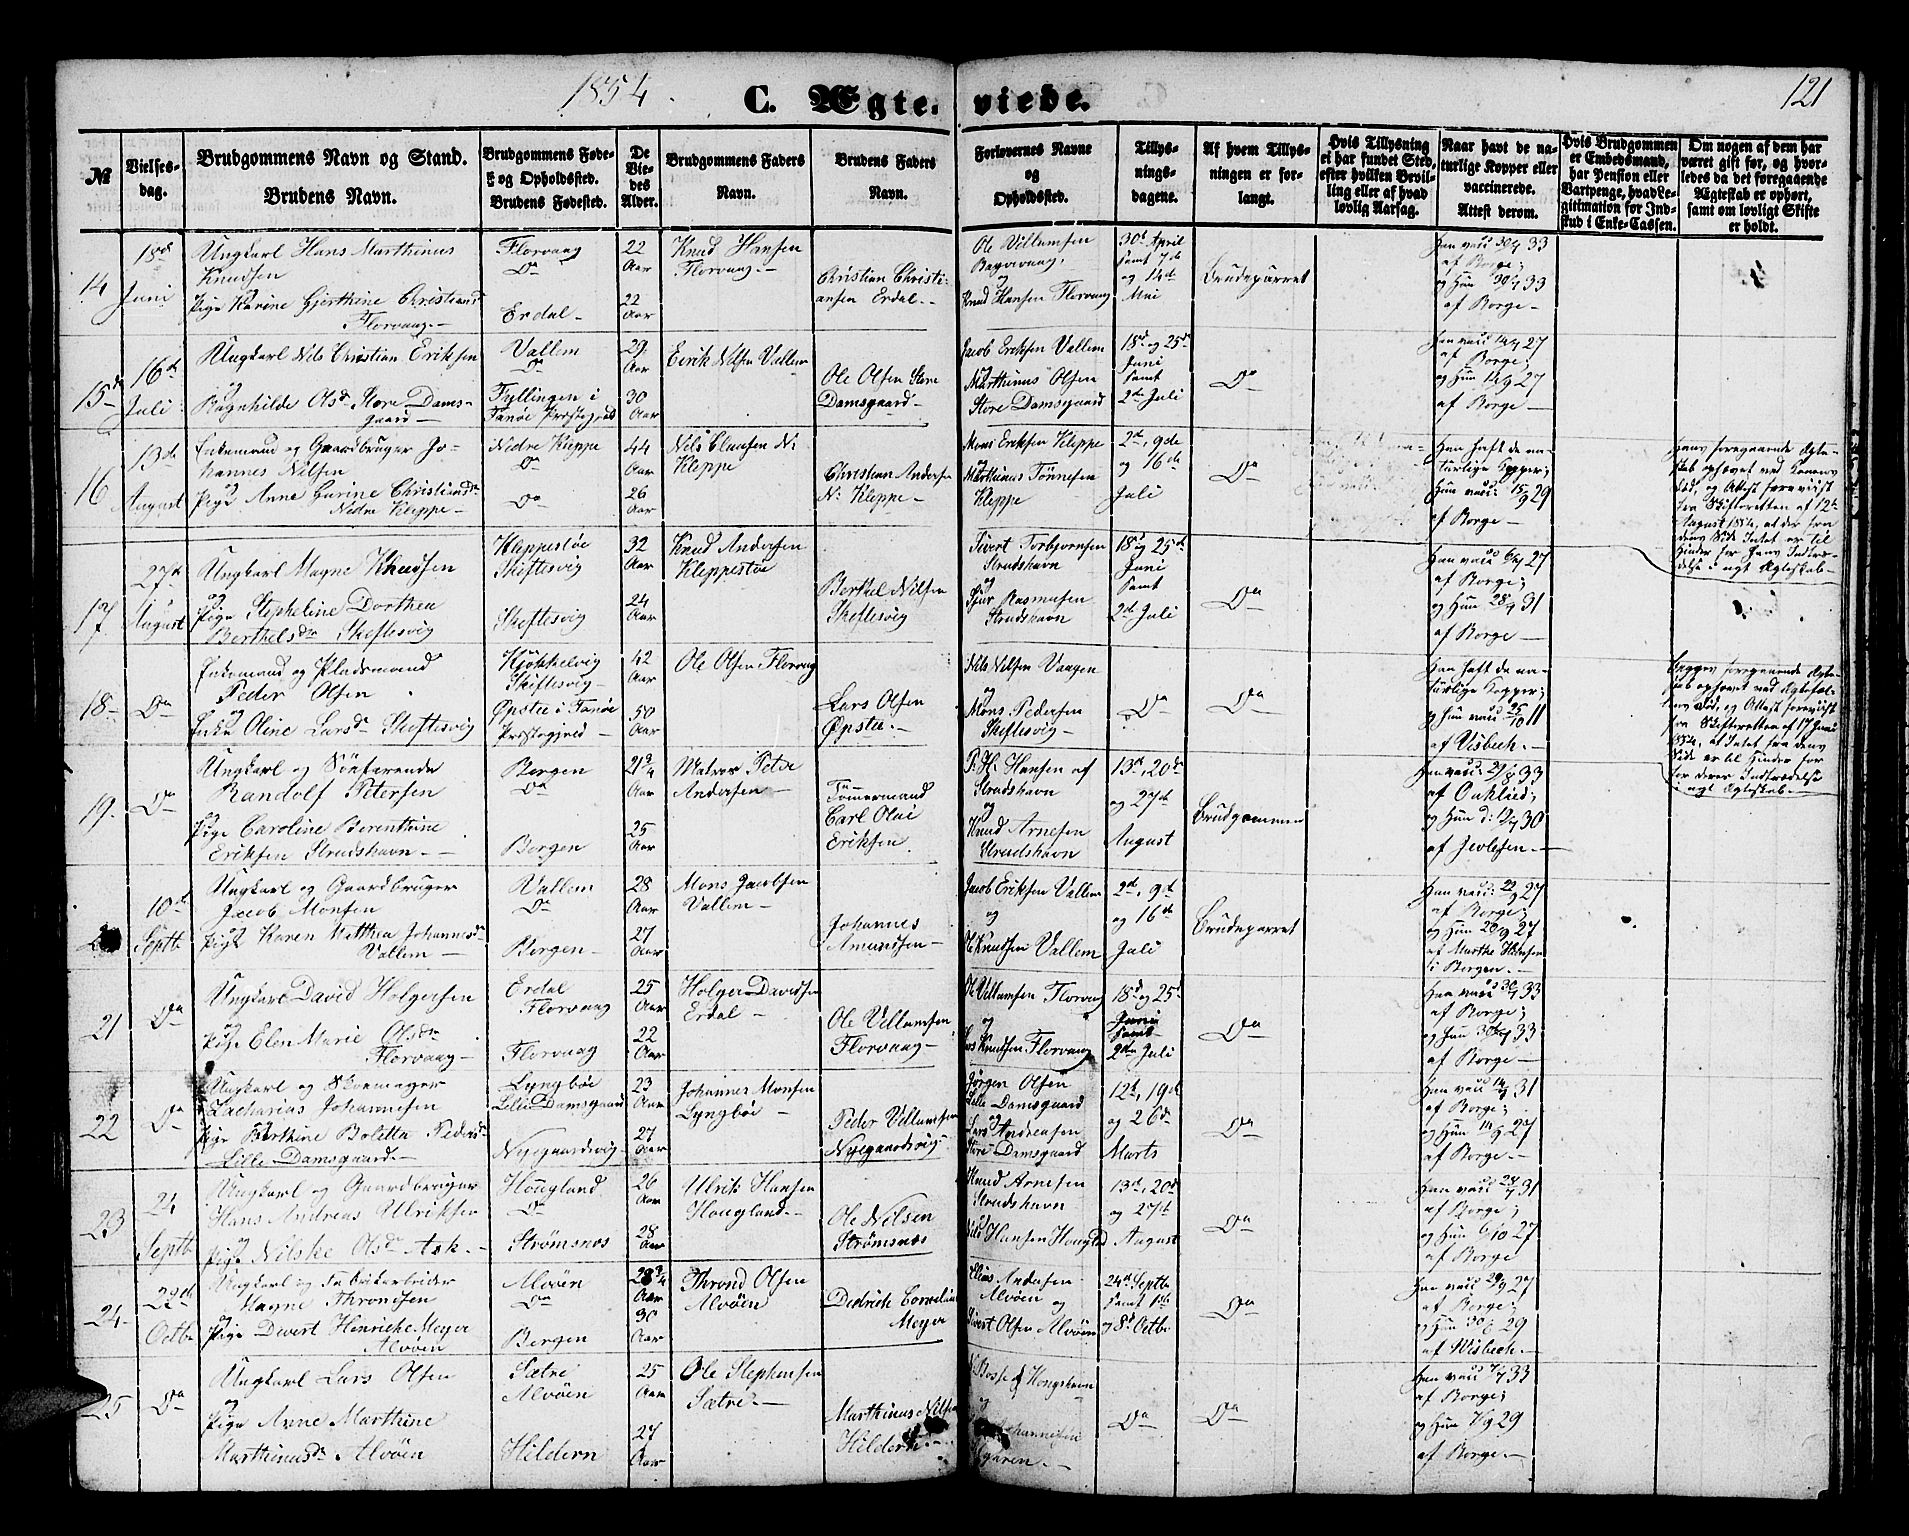 1854.
C. Ægte-viede.
121
№
Vielses-
dag.
Brudgommens Navn og Stand.
Brudens Navn.
Brudgommens Føde-
og Opholdssted.
Brudens Fødested.
De
Vie-
des
Alder.
Brudgommens Faders
Navn.
Brudens Faders
Navn.
Forlovernes Navne
og
Opholdssted.
Tillys-
nings-
dagene.
Af hvem Tillys-
ningen er for-
langt.
Hvis Tillysning
ei har fundet Sted,
efter hvilken Bevil-
ling eller af hvad
lovlig Aarsag.
Naar havt de na-
turlige Kopper eller
vaccinerede.
Attest derom.
Hvis Brudgommen
er Embedsmand,
har Pension eller
Vartpenge, hvad Le-
gitimation for Ind-
skud i Enke-Cassen.
Om nogen af dem har
været gift før, og hvor-
ledes da det foregaaende
Ægteskab er ophørt,
samt om lovligt Skifte
er holdt.
14
18de
Juni
Ungkarl Hans Marthinus
Knudsen
og
Pige Karine Gjerthine Christiansd
Florvaag.-
Florvaag
Do
Erdal-
22
Aar
22
Aar
Knud Hansen
Florvaag.-
Christian Christi-
ansen Erdal.-
Ole Villumsen
og
Knud Hansen Florvaag
30d April
samt 7de
og 14de
Mai
Brudeparret
Han vacc 30/9 33
af Borge;
og Hun 30/9 33
af Borge-
15
16de
Juli
Ungkarl Nils Christian Eriksen
og
Ragnhilde Olsdr Store Dams-
gaard-
Vallem
Do
Fyllingen i
Fanøe Præstegjeld
29
Aar
30
Aar
Eerik Nilsen Vallem
Ole Olsen Store
Damsgaard-
Jacob Eriksen Vallem
og
Marthinus Olsen
Store Damsgaard
18d og 25de
Juni
samt
2de Juli
Do
Han vacc 14/9 27
af Borge;
og Hun 14/9 27
af Borge-
16
13de
August
Enkemand og Gaardbruger Jo-
hannes Nilsen
og
Pige Anne Gurine Christiansdr
Nidre Kleppe-
Nidre Kleppe
Do
Do
44
Aar
26
Aar
Nils Clausen N:
Kleppe
Christian Andersen
N: Kleppe-
Mons Eriksen Kleppe
og
Marthinus Tønnesen
Kleppe
2d, 9de
og 16de
Juli
Do
Han haft de na-
turlige Kopper;
Hun vacc: 15/9 29
af Borge-
Hans foregaaende Ægte-
skab ophævet ved Konens
Død, og Attest forevist
fra Skifteretten af 12te
August 1854, at der fra
dens Side Intet er til
Hinder for hans Indtræ-
delse i nyt Ægteskab-
17
27de
August
Ungkarl Magne Khudsen
og
Pige Stepheline Dorthea
Berthelsdr Skiftesvig
Kleppestøe
Skiftesvig
Skiftesvig
32
Aar
24
Aar
Knud Andersen
Kleppestøe
Berthel Nilsen
Skiftesvig
Sivert Torbjørnsen
Strudshavn
og
Sjur Rasmusen
Strudshavn
18d og 25de
Juni
samt
2de Juli
Do
Han vacc 6/9 27
af Borge;
og Hun 28/9 31
af Borge-
18-
Do
Enkemand og Pladsmand
Peder Olsen
og
Enke Oline Larsdr Skiftesvig
Kjøkkelvig
Skiftesvig-
Øpstee i Fanøe
Præstegjeld-
42
Aar
50
Aar
Ole Olsen Florvaag
Lars Olsen
Øpstee.-
Nils Nilsen Vaagen
og
Mons Pedersen
Skiftesvig-
Do
Do
Han haft de na-
turlige Kopper;
og Hun vacc 25/10 11
af Visbech.-
Begges foregaaende Ægte-
skab ophævet ved Ægtefæl-
lens Død, og Attest forevist
fra Skifteretten af 17 Juni
1854, at Intet fra dens
Side er til Hinder for
for deres Indtrædelse
i nyt Ægteskab.-
19.
Do
Ungkarl og Søefarende
Randolf Petersen
og
Pige Caroline Berenthine
Eriksen Strudshavn.-
Bergen
Do
Bergen
21 3/4
Aar
25
Aar
Matros Peter
Andersen-
Tømmermand
Carl Olai
Eriksen
P. H. Hansen af
Strudshavn
og
Knud Arnesen
Strudshavn
13d, 20de
og 27de
August
Brudgommen
Han vacc: 29/8 33
af Oukland;
og Hun d: 12/9 30
af Jevlesen.-
10de
Septb
Ungkarl og Gaardbruger
Jacob Monsen
og
Pige Karen Mitthea Johannesdr
Vallem-
Vallem
Do
Bergen-
28
Aar
27
Aar
Mons Jacobsen
Vallem-
Johannes
Amundsen-
Jacob Eriksen Vallem
og
Knudsen Vallem
2d, 9d
og 16de
Juli
Brudeparret
Han vacc: 22/9 27
af Borge;
og Hun 20/9 27
af Marthe Hansen
i Bergen.-
21
Do
Ungkarl David Holgersen
og
Pige Elen Marie Olsdr
Florvaag-
Erdal
Florvaag
Florvaag
25
Aar
22
Aar
Holger Davidsen
Erdal-
Ole Villumsen
Florvaag-
Ole Villumsen Florvaag
og
Lars Knudsen Florvaag
18d og 25de
Juni
samt
2de Juli
Do
Han vacc 30/9 33
af Borge;
og Hun 30/9 33
af Borge-
22
Do
Ungkarl og Skoemager
Zacharias Johannesen
og
Pige Berthine Boletta Pedersdr
Lille Damsgaard.-
Lyngbøe
Lille Damsgaard
Nygaardsvig-
23
Aar
27
Aar
Johannes Monsen
Lyngbøe-
Peder Villumsen
Nygaardsvig-
Jørgen Olsen
Lille Damsgaard
og
Lars Andreasen
Store Damsgaard
12d, 19de
og 26de
Marts
Do
Han vacc 14/9 31
af Borge;
og Hun 14/9 27
af Borge.-
23
24
Septb
Ungkarl og Gaardbruger
Hans Andreas Ulriksen
og
Pige Nilske Olsdr Ask.-
Hougland
Do
Strømsnes
26
Aar
28
Aar
Ulrik Hansen
Hougland.-
Ole Nilsen
Strømsnes
Knud Arnesen
Strudshavn
og
Nils Hansen Hougland
13d, 20de
og 27de
August
Do
Han vacc 28/9 31
af Borge;
og Hun 6/10 27
af Borge
24-
22de
Octb
Ungkarl og Fabrikarbeider
Magne Thronsen
og
Pige Divert Henricke Meyer
Alvøen
Alvøen
Do
Bergen
28 3/4
Aar
30
Aar
Thrond Olsen
Alvøen
Didrich Cornelius
Meyer
Elias Andersen
Alvøen og
Sivert Olsen Alvøen
24d Septb
samt 1ste
og 8de Octb
Do
Han vacc 29/9 27
af Borge;
og Hun 30/6 29
af Wisbech.-
25
Do
Ungkarl Lars Olsen
og
Pige Anne Marthine
Marthinusdr Alvøen
Sætre
Alvøen
Hildern
25
Aar
27
Aar
Ole Stephensen
Sætre-
Marthinus Nilsen
Hildern.-
og
Do
Do
Han vacc 7/9 33
af Borge;
og Hun 7/9 29
af Borge.-